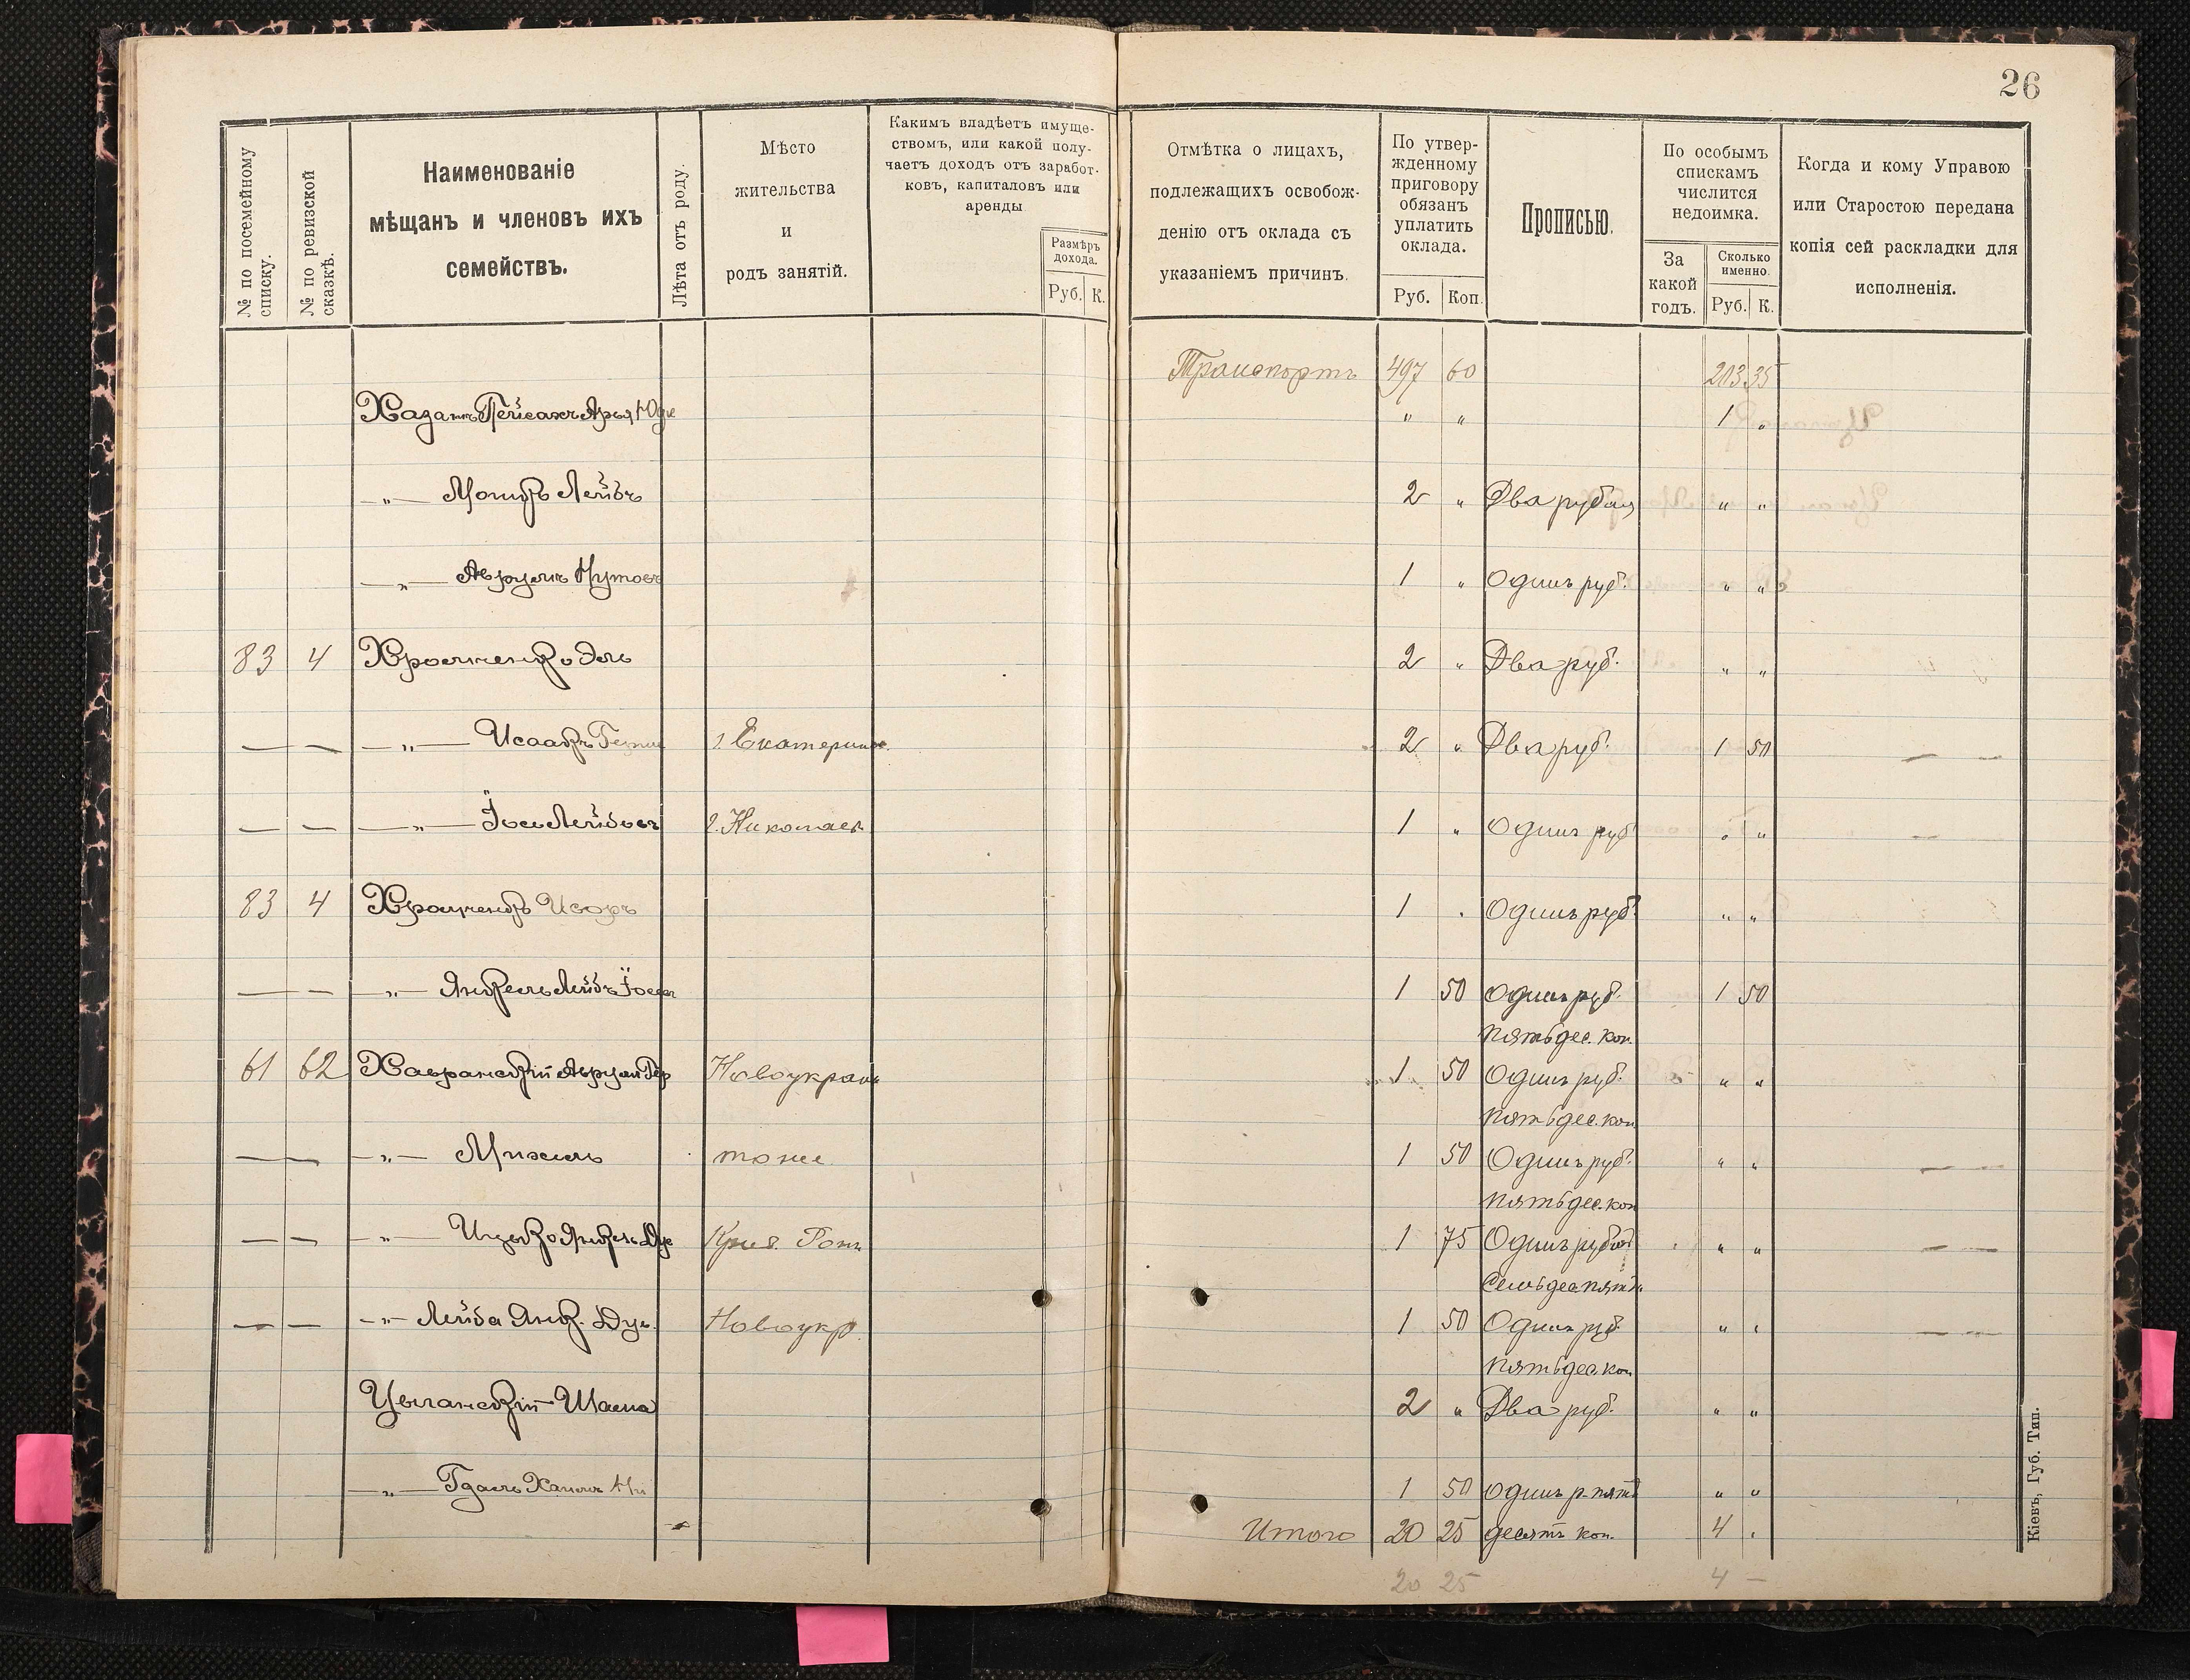 26
№ по посемейному списку.
№ по ревизской сказкѣ.
Наименованіе
мѣщанъ и членовъ ихъ
семействъ.
Лѣта отъ роду.
Мѣсто
жительства
и
родъ занятій.
Какимъ владѣетъ имуще-
ствомъ, или какой полу-
чаетъ доходъ отъ заработ-
ковъ, капиталовъ или
аренды
Размѣръ
дохода.
Руб. К.
Отмѣтка о лицахъ,
подлежащихъ освобож-
денію отъ оклада съ
указаніемъ причинъ.
По утвер-
жденному
приговору
обязанъ
уплатить
оклада.
Руб. Коп.
Прописью.
По особымъ
спискамъ
числится
недоимка.
За
какой
годъ.
Сколько
именно.
Руб. К.
Когда и кому Управою
или Старостою передана
копія сей раскладки для
исполненія.
Транспортъ 497 60 203 35
Хазанъ Пейсахъ Арья Юде " " 1 "
—"— Мошко Лейбъ 2 " Два рубля " "
—"— Аврумъ Нутовъ 1 " Одинъ руб. " "
83 4 Храмченко Эль 2 " Два руб. " "
— — —"— Исаакъ г. Екатеринос. 2 " Два руб. 1 50 — —
— — —"— Іось Лейбовъ г. Николаев 1 " Одинъ руб " " —
83 4 1 " Одинъ руб. " "
— — —"— Янкель Лейбъ Іосев 1 50 Одинъ руб. 1 50
пятьдес. коп.
61 62 Хавранскій Аврум Гер Новоукраин 1 50 Одинъ руб. " "
пятьдес. коп
— — —"— Михель тоже 1 50 Одинъ руб. " " — —
пятьдес. коп
— — —"— Ицько Янкель Ду 1 75 Одинъ рубль " " — —
Семьдес пять
— — —"— Лейба Янк. Дув. Новоукр. 1 50 Одинъ руб " " — —
пятьдес. коп
Цыганскій Шама 2 " Два руб. " "
—"— Гдаль Хаимъ 1 50 Одинъ р. пять " "
Итого 20 25 десятъ коп. 4 "
20 25 4 —
Кіевъ, Губ. Тип.